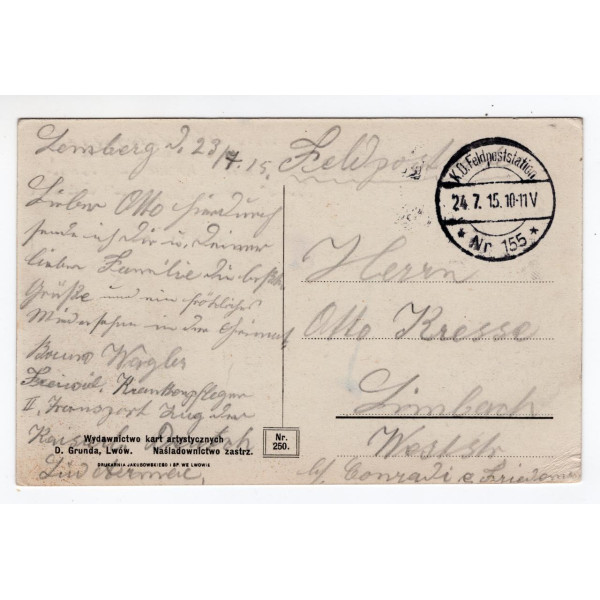 Lemberg d. 23/7.15.
Feldpost
Lieber Otto hierdurch
sende ich dir u. deiner
lieben Familie die besten
Grüße und ein fröhliches
Wiedersehn in der Heimat
Bruno Wagler
Freiwil. Krankenpfleger
II. Transport Zug der
K.D. Feldpoststation
24.7.15.10-11V
* Nr. 155 *
Herrn
Otto Kresse
Limbach
Weststr
b/ Conradi &
Wydawnictwo kart artystycznych
D. Grunda, Lwów. Naśladownictwo zastrz.
DRUKARNIA JAKUBOWSKIEGO I SP. WE LWOWIE
Nr.
250.